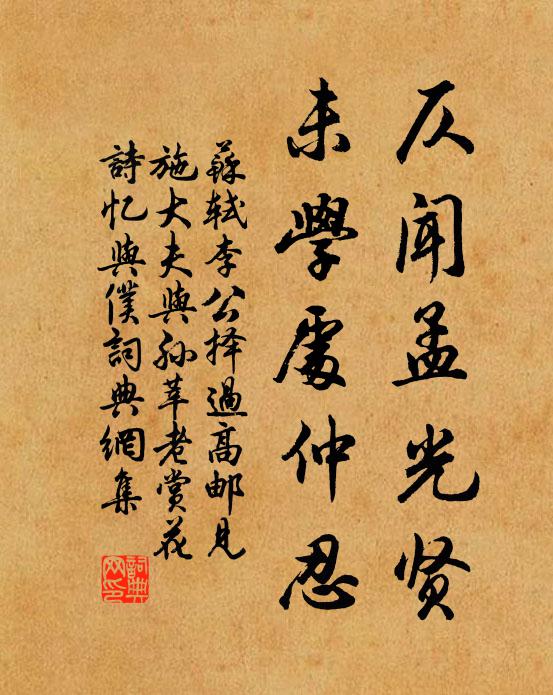 仄闻孟光贤
未學處仲忍
蘇轼李公择過高邮见
施大夫與孙莘老赏花
詩忆與僕詞典網集
詞典網印